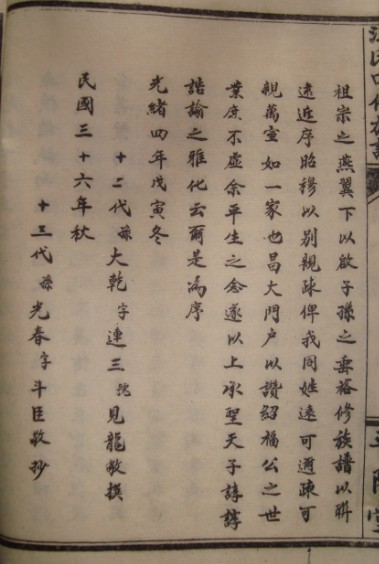 祖宗之燕翼下以啟子孫之垂裕修族譜以聨
遠近序昭穆以別親疎俾我同姓遠可邇疎可
親萬室如一家也昌大門户以讃紹福公之世
業庶不虛余平生之念遂以上承聖天子諄諄
誥諭之雅化云爾是為序
光緒四年戊寅冬
十二代孫大乾字連三號見龍敬撰
民國三十六年秋
十三代孫光春字斗臣敬抄